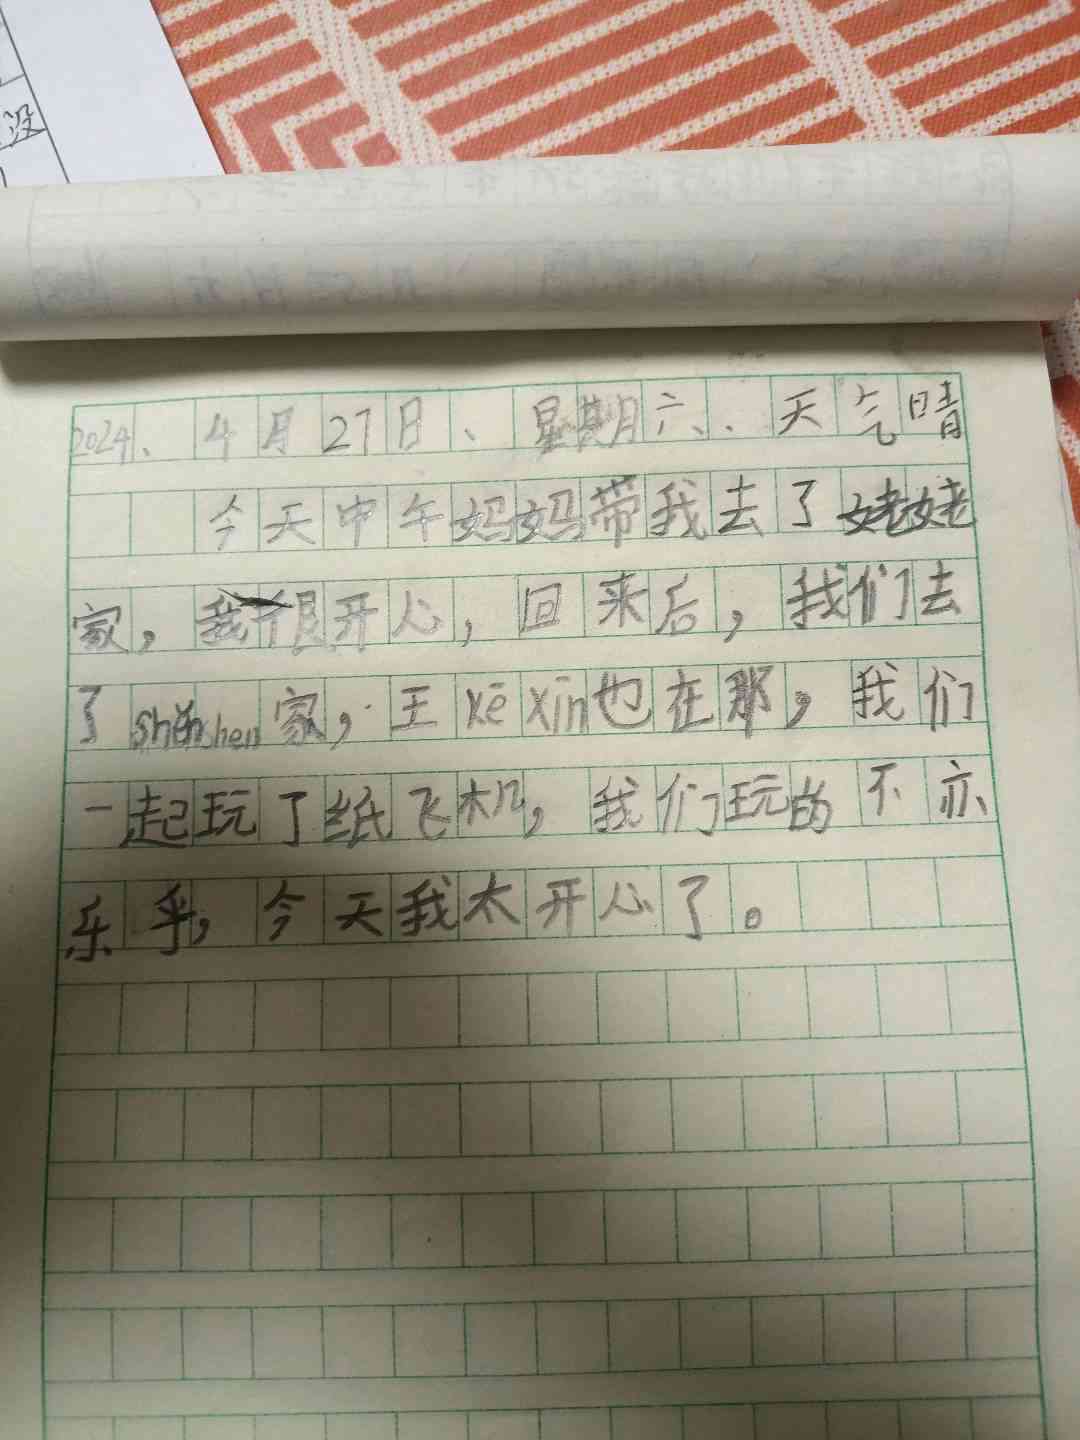 没
2024、4月27日、星期六、、天气晴
今天中午妈妈带我去了姥姥
家，我很开心，回来后，我们去
了shěnshen家，王kē xīn也在那，我们
一起玩了纸飞机，我们玩的不亦
乐乎，今天我太开心了。